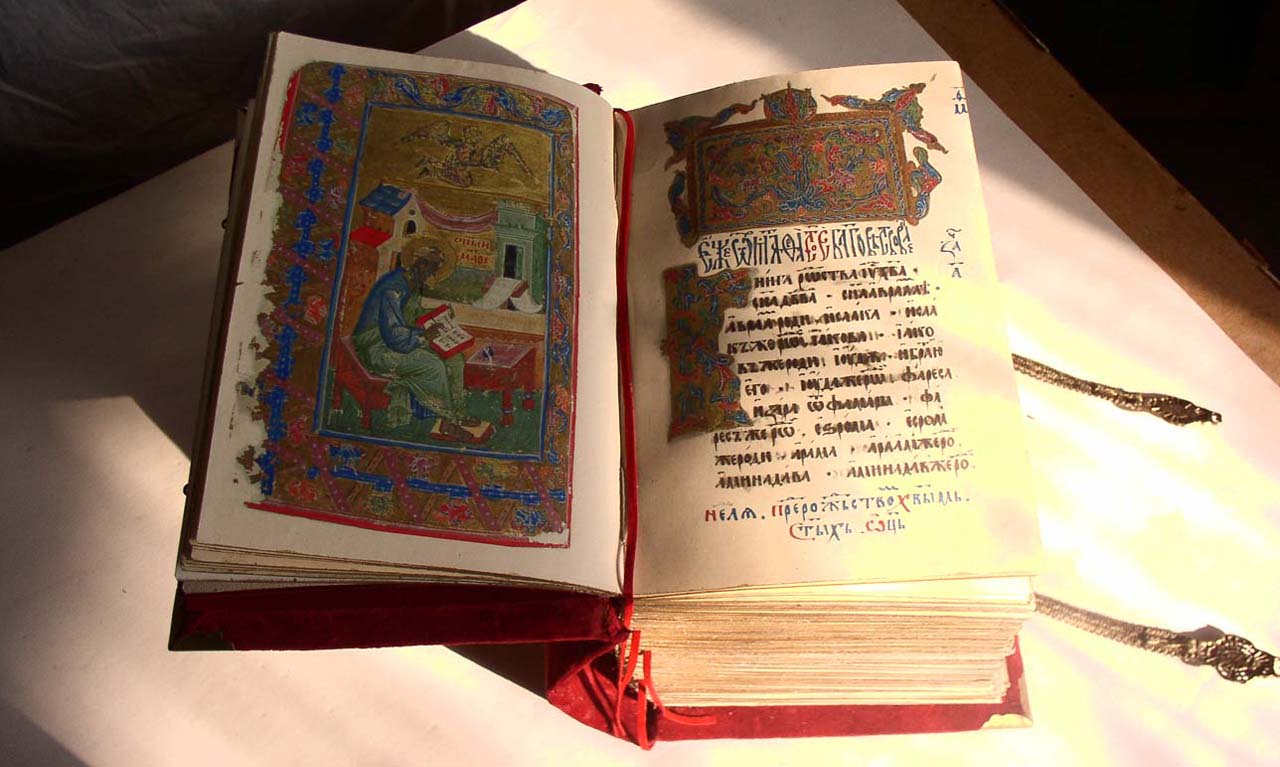 Еже ѿ Мтѳа ст҃ое бл҃говѣствова
нига рожства і҃у х҃ва ·
сн҃а дв҃ва · сн҃а авраамлѧ ·
авраа роди исаака · исаа
къ же роди іакова · іако
въ же роди іоуду · и братию
его · іоуда же роди фареса
и зара ѿ фамары · фа
ресъ же ро есрома · есромъ
же роди арама · арамъ же ро
аминадава · аминадавъ же ро
нелѧ. прерожьство х҃вымь.
ст҃ыхъ. ѻц҃ь